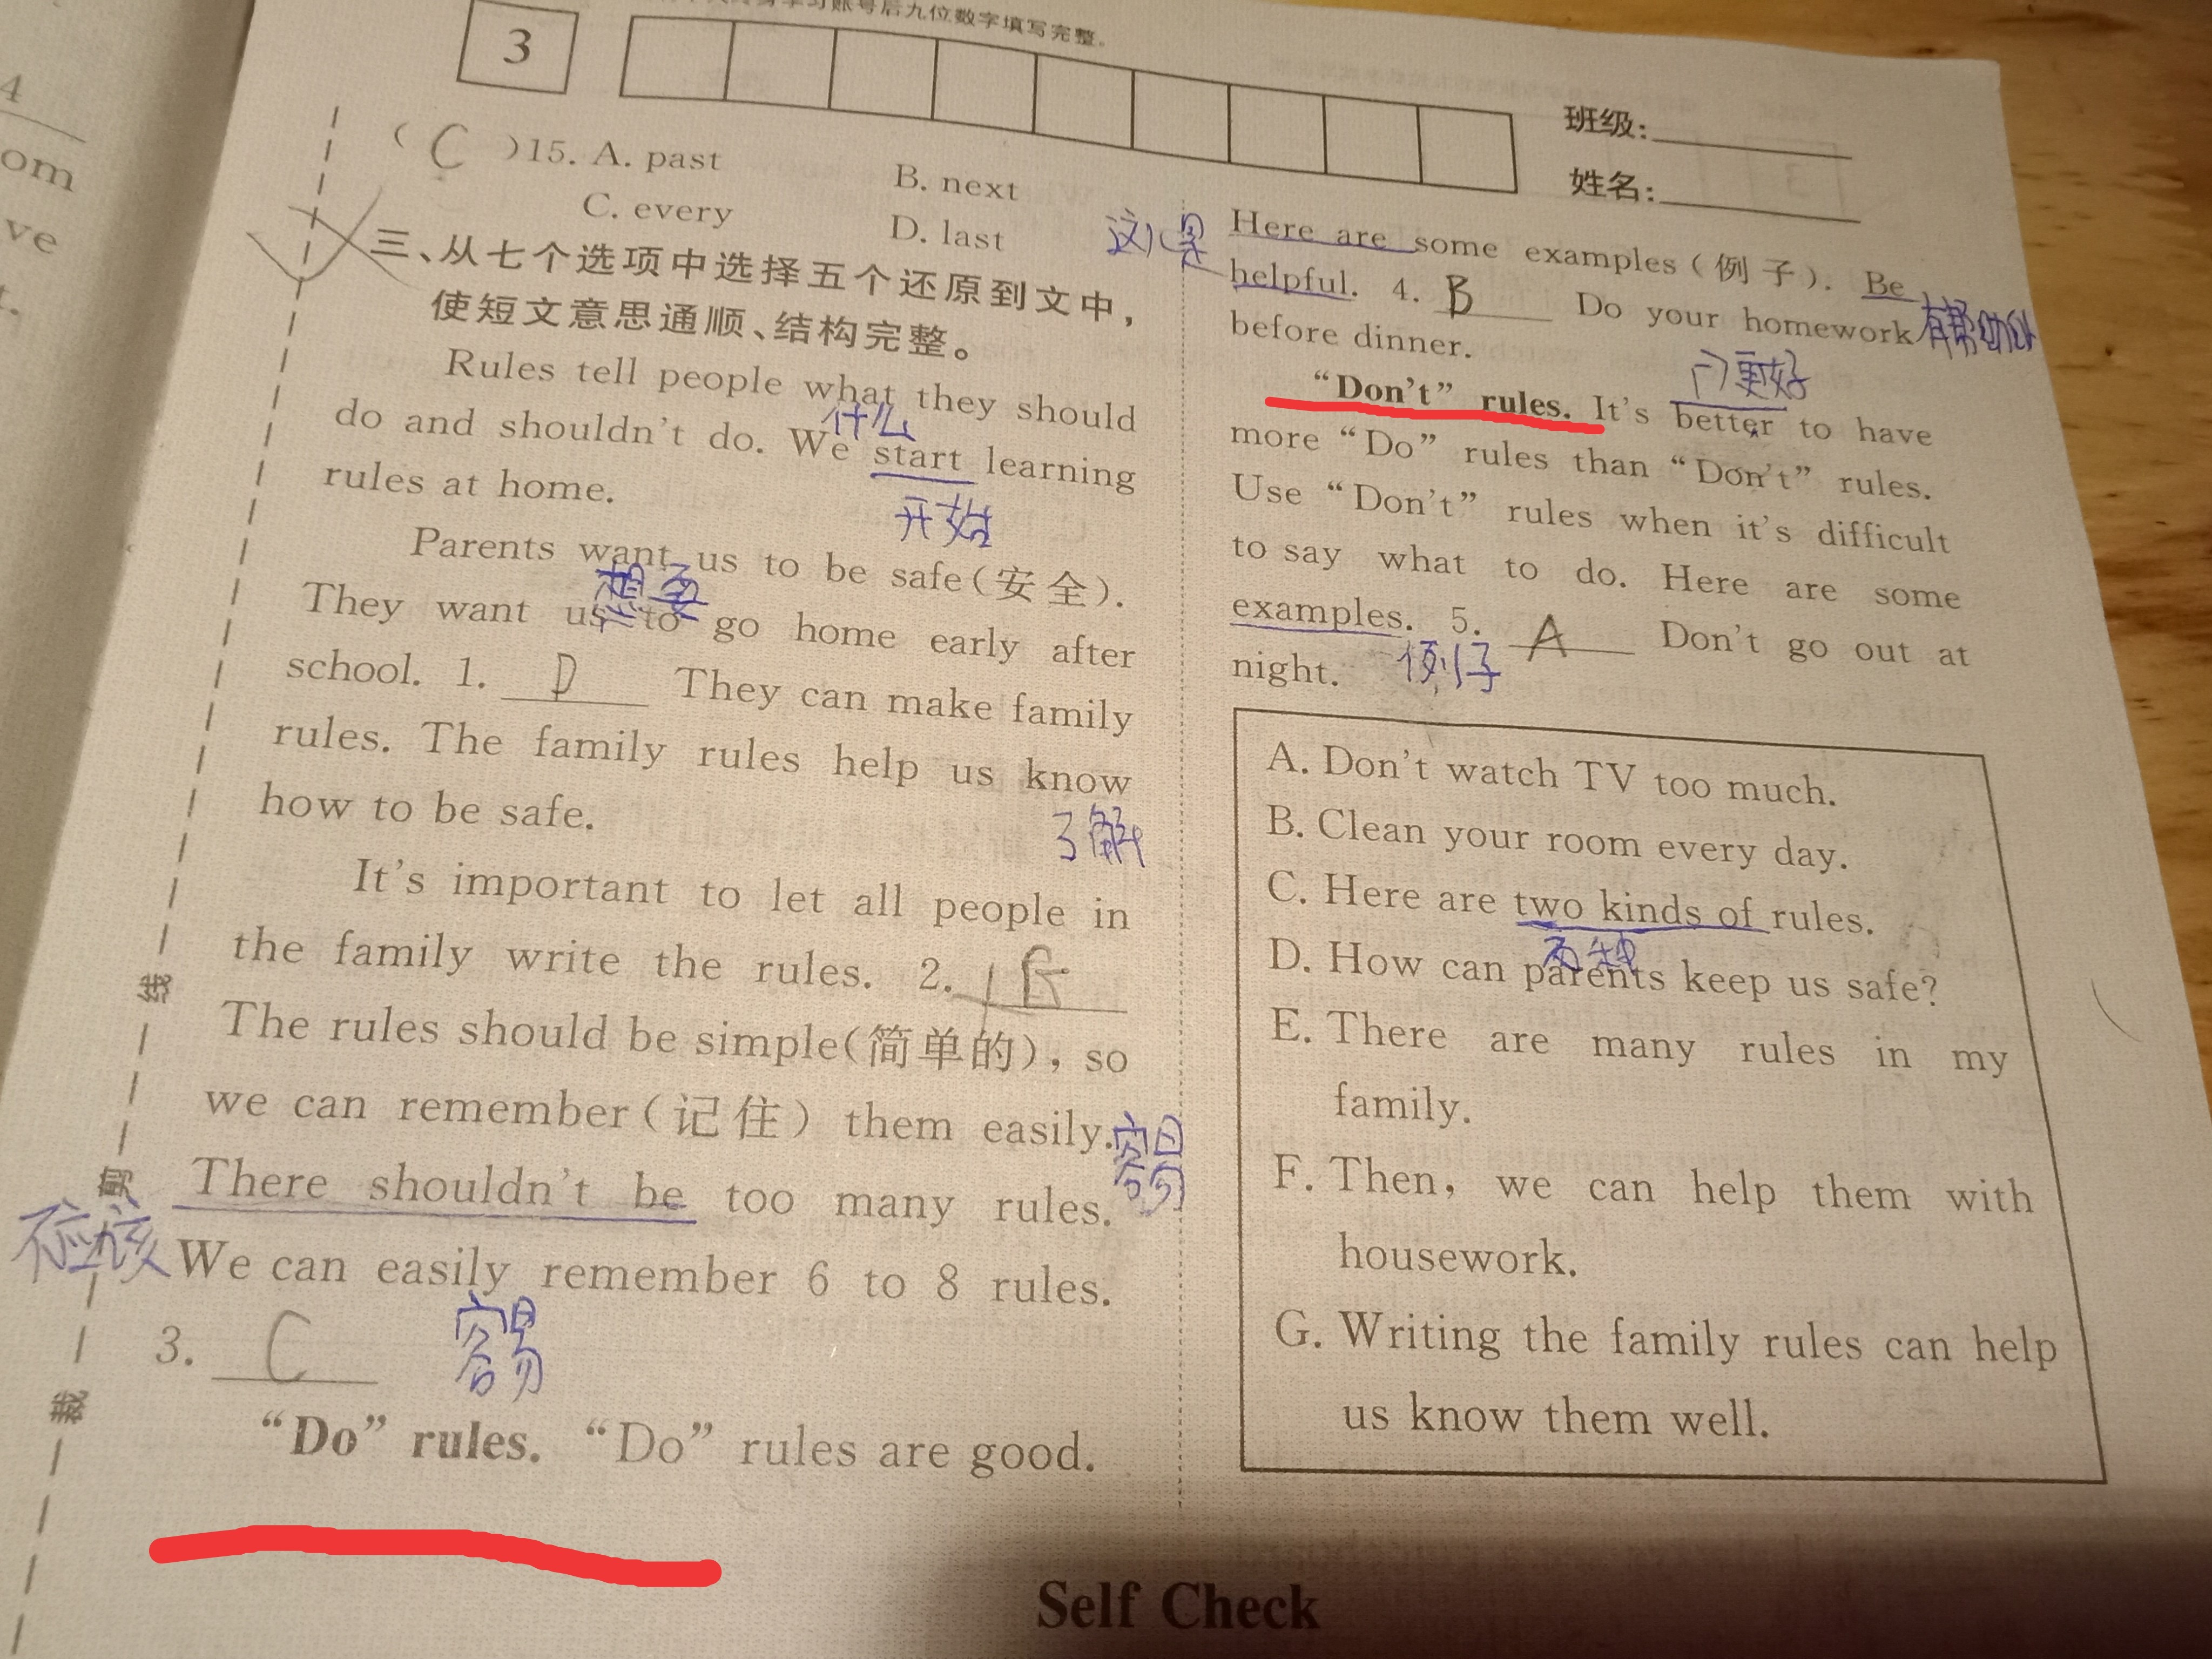 4
om
ve
t.
学习账号后九位数字填写完整。
3
班级:
姓名:
( C )15. A. past B. next
C. every D. last
三、从七个选项中选择五个还原到文中,
使短文意思通顺、结构完整。
Rules tell people what they should
什么
do and shouldn't do. We start learning
开始
rules at home.
Parents want us to be safe(安全).
想要
They want us to go home early after
school. 1. D They can make family
rules. The family rules help us know
了解
how to be safe.
It's important to let all people in
the family write the rules. 2. G
The rules should be simple(简单的), so
we can remember(记住) them easily.
容易
There shouldn't be too many rules.
不应该
We can easily remember 6 to 8 rules.
容易
3. C
"Do" rules. "Do" rules are good.
这儿是
Here are some examples(例子). Be
helpful. 4. B Do your homework
有帮助的
before dinner.
更好
"Don't" rules. It's better to have
more "Do" rules than "Don't" rules.
Use "Don't" rules when it's difficult
to say what to do. Here are some
examples. 5. A Don't go out at
例子
night.
A. Don't watch TV too much.
B. Clean your room every day.
C. Here are two kinds of rules.
两种
D. How can parents keep us safe?
E. There are many rules in my
family.
F. Then, we can help them with
housework.
G. Writing the family rules can help
us know them well.
线
剪
裁
Self Check